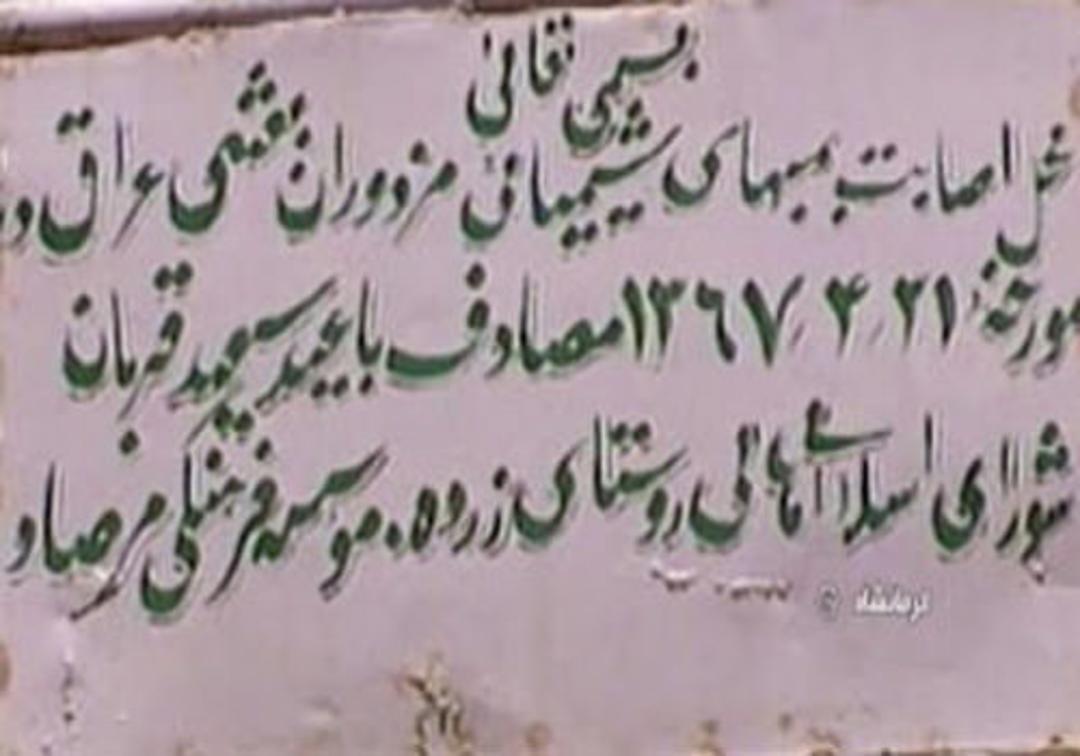 بسمی تعالی
محل اصابت بمبهای شیمیائی مزدوران بعثی عراق در
مورخهٔ ۲۱/۴/۱۳۶۷ مصادف با عید سعید قربان
شورای اسلامی اهالی روستای زرده. موسسه فرهنگی مرصاد
کرمانشاه